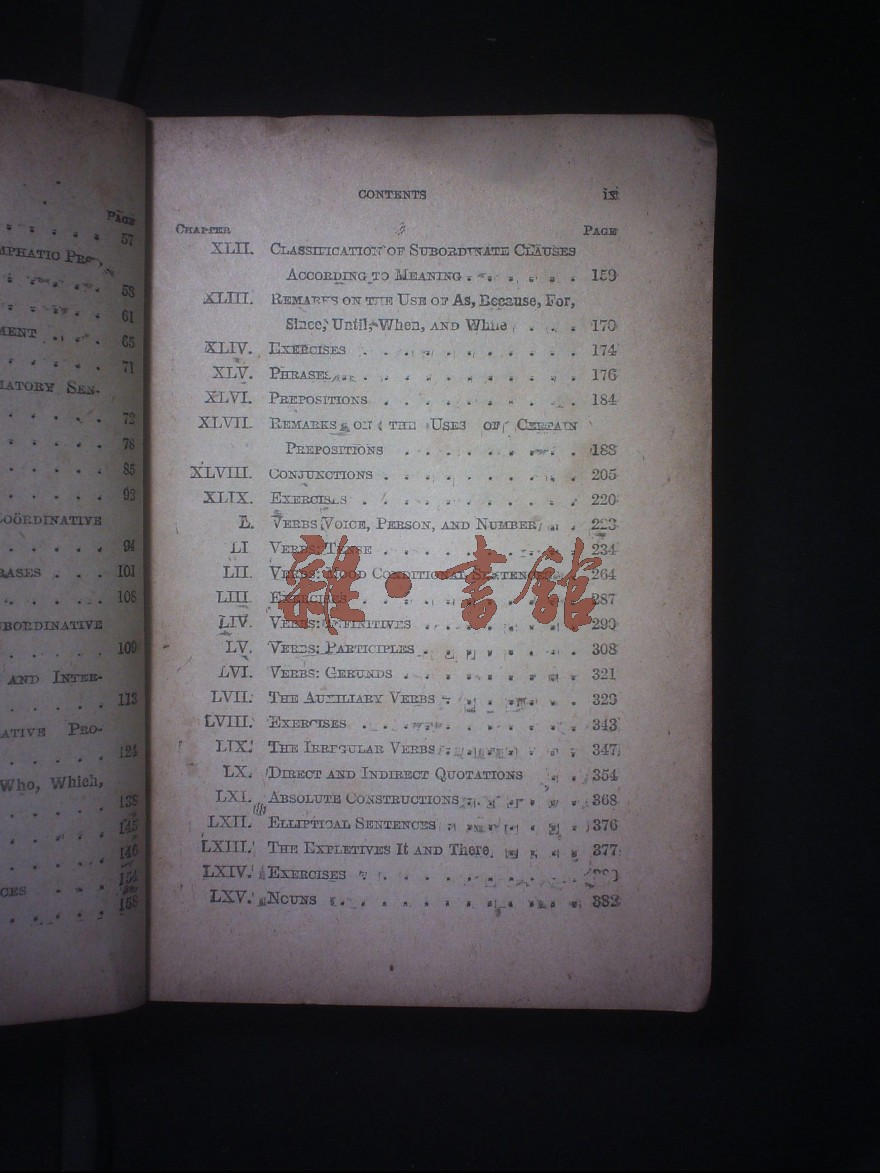 PAGE
57
MPHATIC PRO-
58
61
MENT 65
71
MATORY SEN-
72
78
85
93
COÖRDINATIVE
94
RASES 101
108
UBORDINATIVE
109
AND INTER-
113
ATIVE PRO-
124
Who, Which,
138
145
146
154
CES
158
CONTENTS ix
CHAPTER PAGE
XLII. CLASSIFICATION OF SUBORDINATE CLAUSES
ACCORDING TO MEANING . . . . . . 159
XLIII. REMARKS ON THE USE OF As, Because, For,
Since, Until, When, AND While . . . 170
XLIV. EXERCISES . . . . . . . . . . 174
XLV. PHRASES . . . . . . . . . . 176
XLVI. PREPOSITIONS . . . . . . . . 184
XLVII. REMARKS ON THE USES OF CERTAIN
PREPOSITIONS . . . . . . . . 188
XLVIII. CONJUNCTIONS . . . . . . . . 205
XLIX. EXERCISES . . . . . . . . . . 220
L. VERBS: VOICE, PERSON, AND NUMBER . . 223
LI. VERBS: TENSE . . . . . . . . . 234
LII. VERBS: MOOD CONDITIONAL SENTENCES . 264
LIII. EXERCISES . . . . . . . . . . 287
LIV. VERBS: INFINITIVES . . . . . . . 290
LV. VERBS: PARTICIPLES . . . . . . . 308
LVI. VERBS: GERUNDS . . . . . . . . 321
LVII. THE AUXILIARY VERBS . . . . . . 323
LVIII. EXERCISES . . . . . . . . . . 343
LIX. THE IRREGULAR VERBS . . . . . . 347
LX. DIRECT AND INDIRECT QUOTATIONS . . 354
LXI. ABSOLUTE CONSTRUCTIONS . . . . . 368
LXII. ELLIPTICAL SENTENCES . . . . . . 376
LXIII. THE EXPLETIVES It AND There . . . . 377
LXIV. EXERCISES . . . . . . . . . .
LXV. NOUNS . . . . . . . . . . . 382
雜·書館